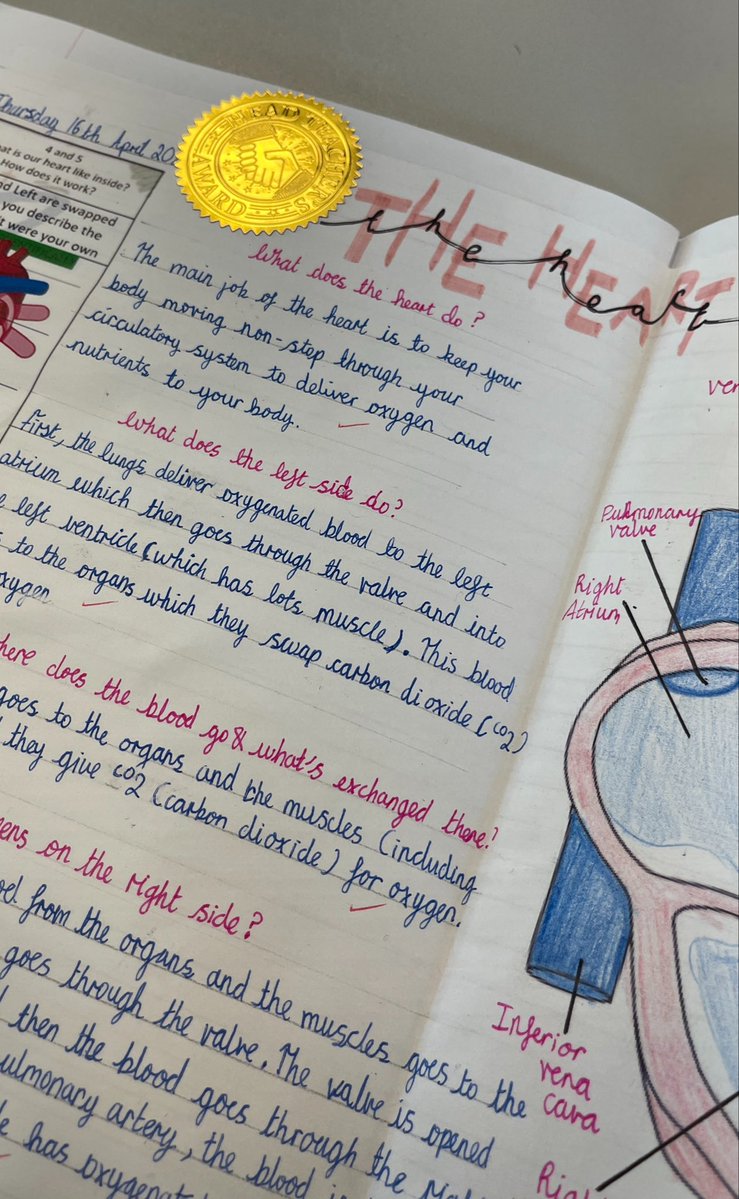 Thursday 16th April 20
4 and 5
at is our heart like inside?
How does it work?
d Left are swapped
you describe the
it were your own
HEAD TEACHER'S
AWARD
THE HEART
the heart
What does the heart do?
The main job of the heart is to keep your
body moving non-stop through your
circulatory system to deliver oxygen and
nutrients to your body.
What does the left side do?
First, the lungs deliver oxygenated blood to the left
atrium which then goes through the valve and into
left ventricle (which has lots muscle). This blood
to the organs which they swap carbon dioxide (co2)
oxygen
here does the blood go & what's exchanged there?
goes to the organs and the muscles (including
they give co2 (carbon dioxide) for oxygen.
ens on the right side?
from the organs and the muscles goes to the
goes through the valve. The valve is opened
then the blood goes through the
ulmonary artery, the blood
has
ver
Pulmonary
valve
Right
Atrium
Inferior
vena
cava
Rig